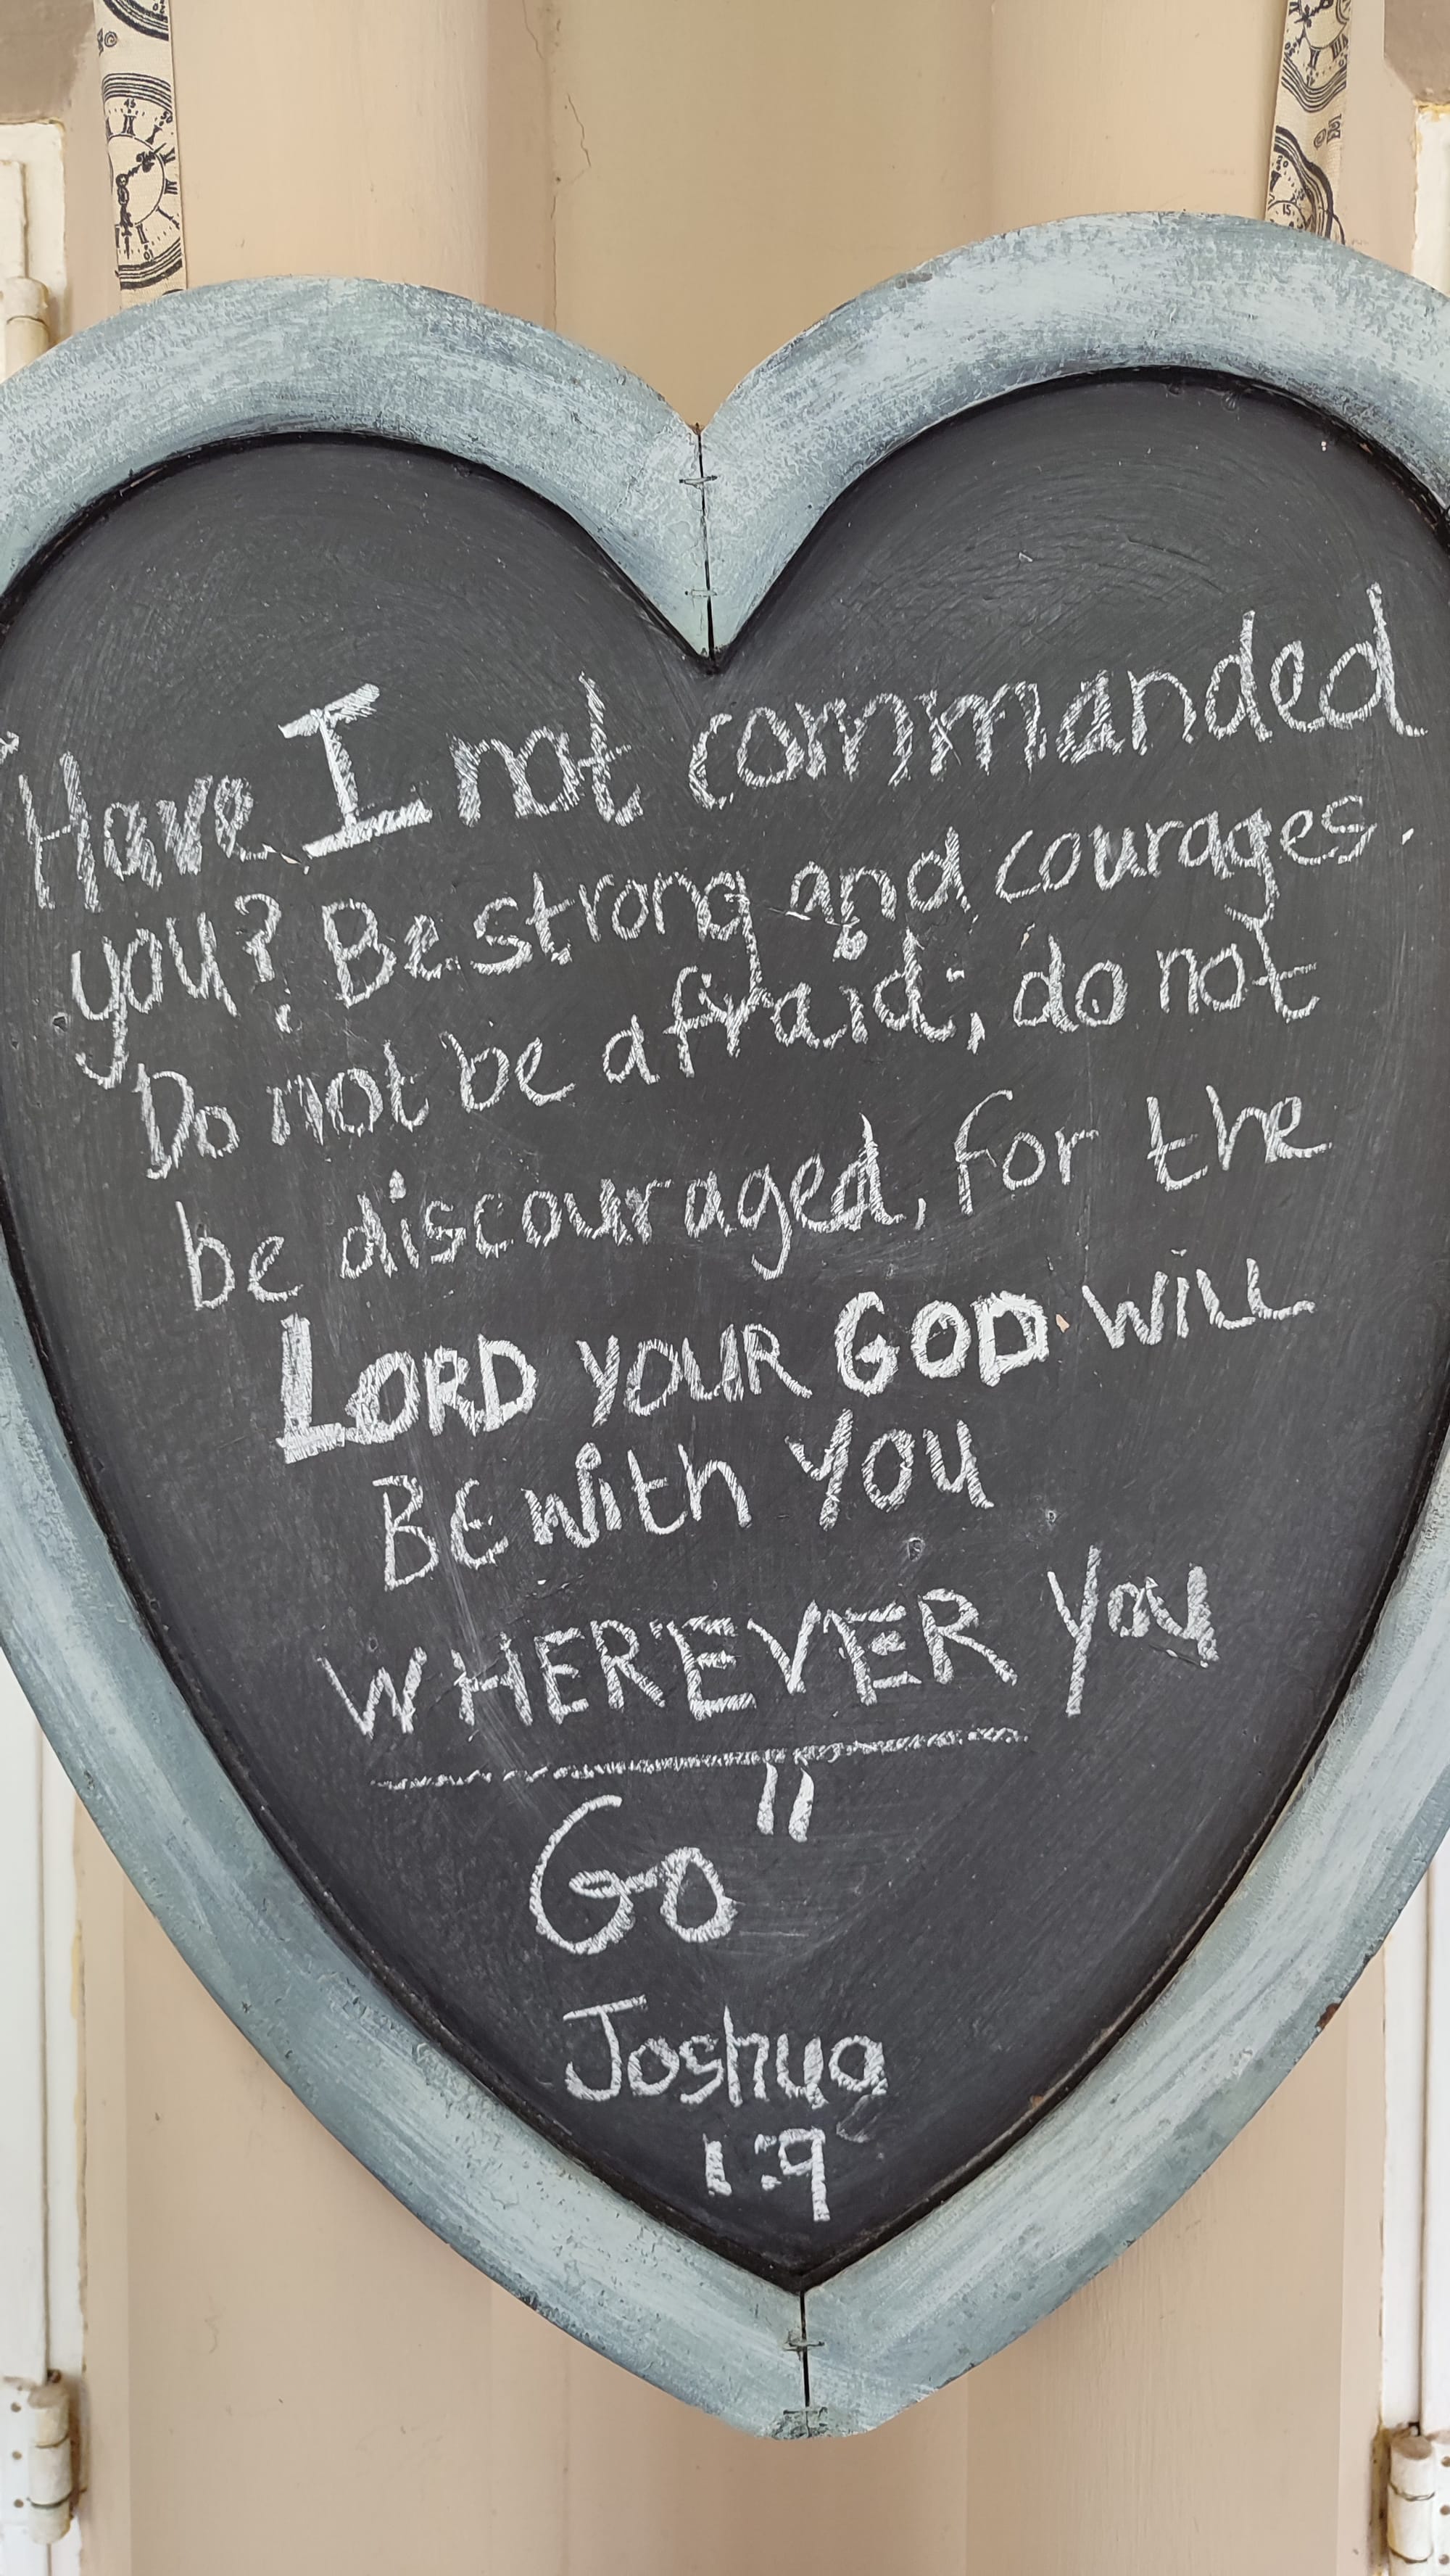 "Have I not commanded
you? Be strong and courages.
Do not be afraid; do not
be discouraged, for the
LORD YOUR GOD WILL
BE With YOU
WHEREVER YOU
Go"
Joshua
1:9